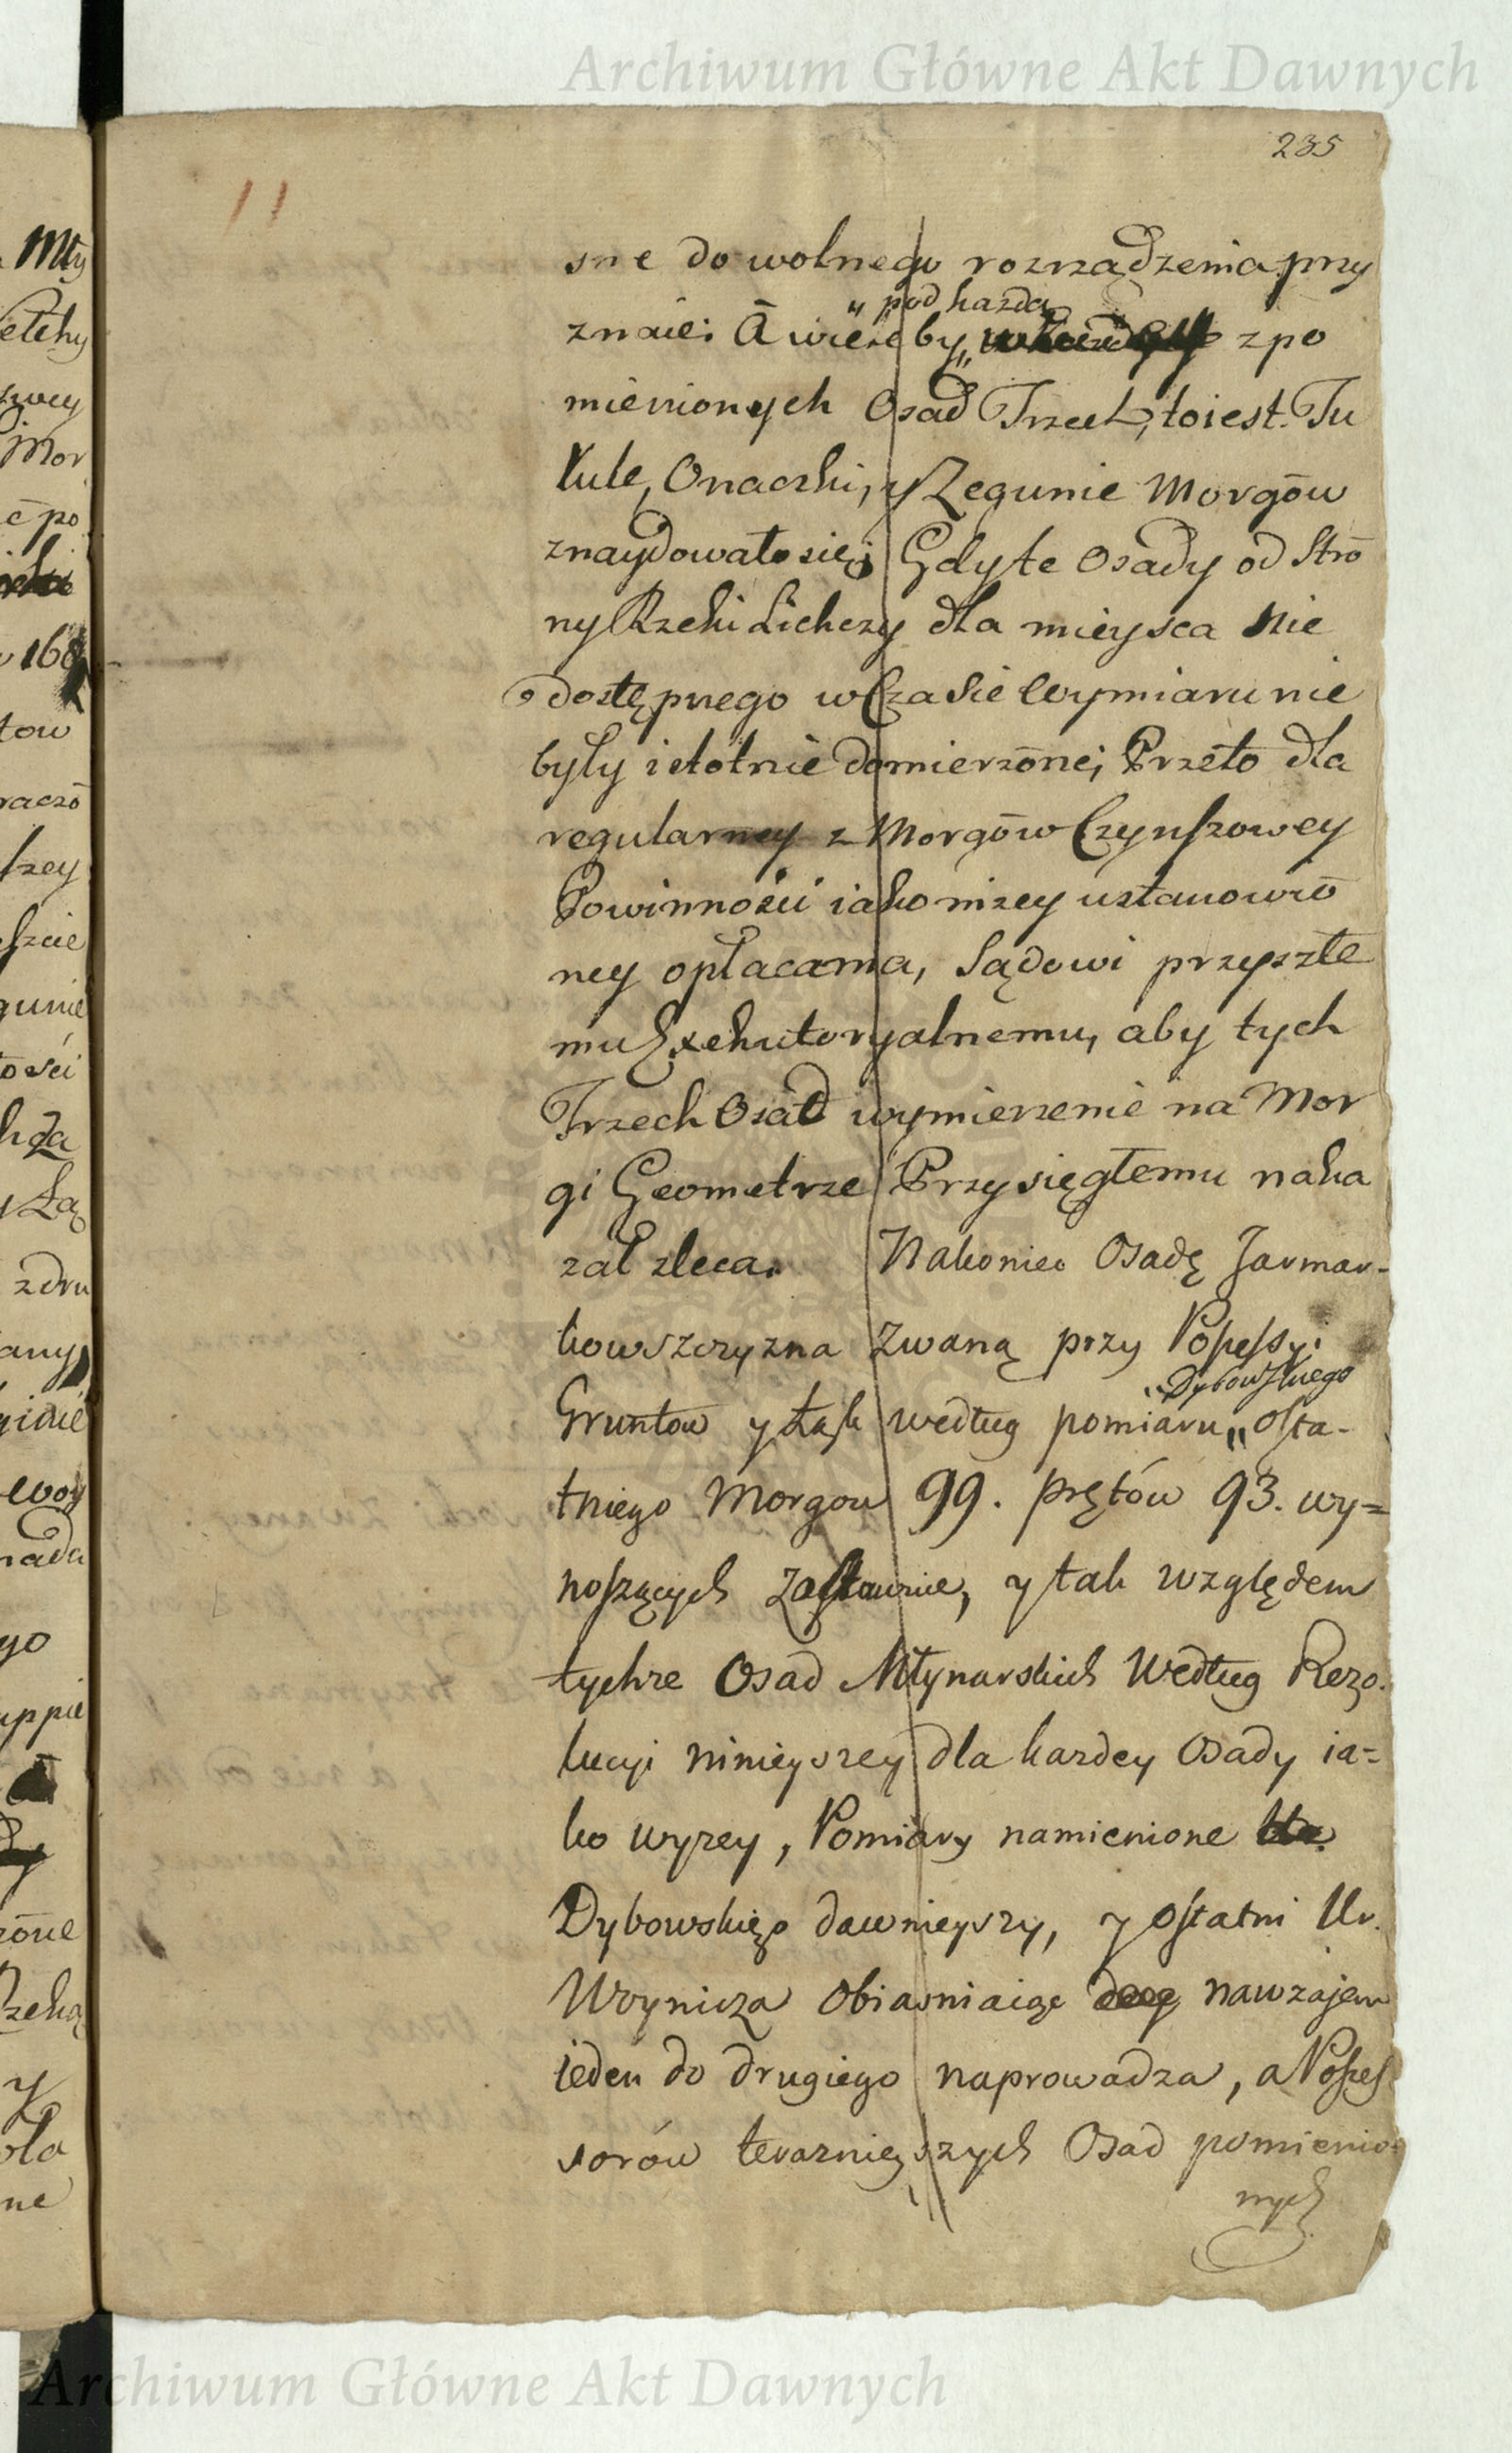 Archiwum Główne Akt Dawnych
235
11
sne do wolnego rozrządzenia przy
„ pod każdą
znaie: A wieleby „ zpo
mienionych Osad Trzech, to iest. Tu
kule, Onaczki, y Zegunie Morgōw
znaydowało się; Gdy te Osady od Strō
ny Rzeki Lichczy dla mieysca Nie
dostępnego w Czasie Wymiaru nie
były istotnie domierzōne; Przeto dla
regularney z Morgōw Czynszowey
Powinności iako niżey ustanowiō
ney opłacania, Sądowi przyszłe
mu Exekutoryalnemu, aby tych
Trzech Osad wymierzenie na Mor
gi Geometrze Przysięgłemu naka
zał zleca. Nakoniec Osadę Jarmar-
kowszczyzna Zwaną przy Possessyi
„Dybowskiego
Gruntow y Łąk według pomiaru „ osta-
tniego Morgow 99. prętów 93. wy=
noszących Zostawuie, y tak względem
tychże Osad Młynarskich Według Rezo.
lucyi ninieyszey dla każdey Osady ia=
ko wyżey, Pomiary namienione
Dybowskiego dawnieyszy, y ostatni Ur.
Woynicza obiasniaiąc nawzajem
ieden do drugiego naprowadza, a Posses
sorów teraznieyszych Osad pomienio=
nych
Archiwum Główne Akt Dawnych